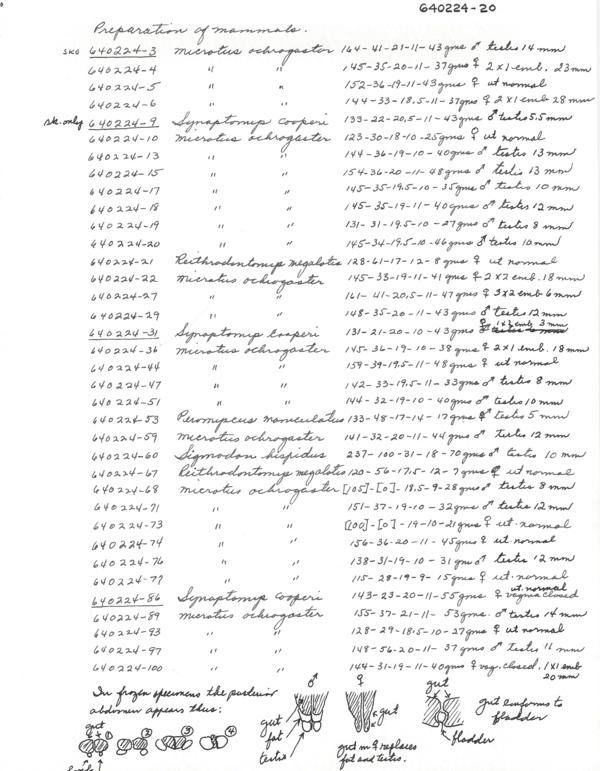 640224-20
Preparation of mammals.
sko 640224-3 Microtus ochrogaster 164-41-21-11-43gms ♂ testes 14 mm
640224-4 " " 145-35-20-11-37gms ♀ 2x1 emb. 23mm
640224-5 " " 152-36-19-11-43gms ♀ ut normal
640224-6 " " 144-33-18.5-11-37gms ♀ 2x1 emb 28mm
sk. only 640224-9 Synaptomys cooperi 133-22-20.5-11-43gms ♂ testes 5.5mm
640224-10 Microtus ochrogaster 123-30-18-10-25gms ♀ ut normal
640224-13 " " 144-36-19-10-40gms ♂ testis 13 mm
640224-15 " " 154-36-20-11-48gms ♂ testis 13 mm
640224-17 " " 145-35-19.5-10-35gms ♂ testes 10 mm
640224-18 " " 145-35-19-11-40gms ♂ testes 12mm
640224-19 " " 131-31-19.5-10-27gms ♂ testes 8 mm
640224-20 " " 145-34-19.5-10-46gms ♂ testes 10mm
640224-21 Reithrodontomys megalotis 128-61-17-12-8gms ♀ ut normal
640224-22 Microtus ochrogaster 145-33-19-11-41gms ♀ 2x2 emb. 18mm
640224-27 " " 161-41-20.5-11-47gms ♀ 3x2 emb 6mm
640224-29 " " 148-35-20-11-43gms ♂ testes 12mm
640224-31 Synaptomys cooperi 131-21-20-10-43gms ♀ 1x2 emb. 3mm
640224-36 Microtus ochrogaster 145-36-19-10-38gms ♀ 2x1 emb. 18mm
640224-44 " " 159-39-19.5-11-48gms ♀ ut normal
640224-47 " " 142-33-19.5-11-33gms ♂ testes 8 mm
640224-51 " " 144-32-19-10-40gms ♂ testes 10mm
640224-53 Peromyscus maniculatus 133-48-17-14-17gms ♂ testes 5 mm
640224-59 Microtus ochrogaster 141-32-20-11-44gms ♂ testes 12 mm
640224-60 Sigmodon hispidus 237-100-31-18-70gms ♂ testes 10 mm
640224-67 Reithrodontomys megalotis 120-56-17.5-12-7gms ♀ ut normal
640224-68 Microtus ochrogaster [105]-[0]-18.5-9-28gms ♂ testes 8 mm
640224-71 " " 151-37-19-10-32gms ♂ testes 12mm
640224-73 " " [100]-[0]-19-10-21gms ♀ ut. normal
640224-74 " " 156-36-20-11-45gms ♀ ut. normal
640224-76 " " 138-31-19-10-31gms ♂ testes 12 mm
640224-77 " " 115-28-19-9-15gms ♀ ut. normal
640224-86 Synaptomys cooperi 143-23-20-11-55gms ♀ ut. normal vagina closed
640224-89 Microtus ochrogaster 155-37-21-11-53gms. ♂ testes 14mm
640224-93 " " 128-29-18.5-10-27gms ♀ ut normal
640224-97 " " 148-56-20-11-37gms ♂ testes 11 mm
640224-100 " " 144-31-19-11-40gms ♀ vag. closed. 1x1 emb 20mm
In frozen specimens the posterior
abdomen appears thus:
gut
① ② ③ ④
♂
gut
fat
testis
♀
gut
gut in ♀ replaces
fat and testis.
gut
bladder
gut conforms to
bladder